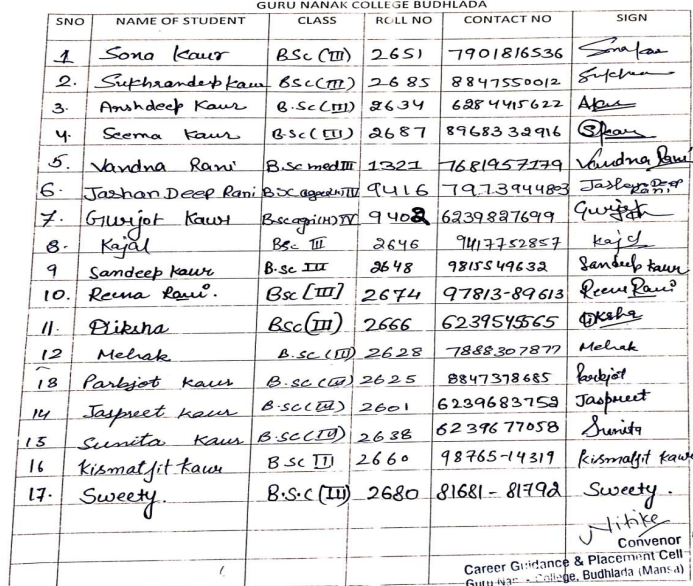 GURU NANAK COLLEGE BUDHLADA
SNO NAME OF STUDENT CLASS ROLL NO CONTACT NO SIGN
1 Sona Kaur BSc (III) 2651 7901816536
2. Sukhrandeep Kaur BSC (III) 2685 8847550012
3. Arshdeep Kaur B.Sc (III) 2634 6284415622
4. Seema Kaur B.Sc (III) 2687 8968332916
5. Vandna Rani B.Sc med III 1321 7681957179 Vandna Rani
6. Jashan Deep Rani B.SC agri(H) IV 9416 7973944803 Jashan Deep Rani
7. Gurjot Kaur Bsc agri(H) IV 9402 6239827699 Gurjot
8. Kajal BSc III 2646 9417752857 Kajal
9 Sandeep Kaur B.Sc III 2648 9815549632 Sandeep Kaur
10. Reena Rani. Bsc [III] 2674 97813-89613 Reena Rani
11. Diksha BSC (III) 2666 6239545565 Diksha
12 Mehak B.SC (III) 2628 7888307877 Mehak
13 Parbjot Kaur B.SC (III) 2625 8847378685 Parbjot
14 Jaspreet Kaur B.SC (III) 2601 6239683752 Jaspreet
15 Sunita Kaur B.SC (III) 2638 6239677058 Sunita
16 Kismatjit Kaur B SC III 2660 98765-14319 Kismatjit Kaur
17. Sweety. B.S.C (III) 2680 81681-81792 Sweety.
Nitike
Convenor
Career Guidance & Placement Cell
Guru Nanak College, Budhlada (Mansa)